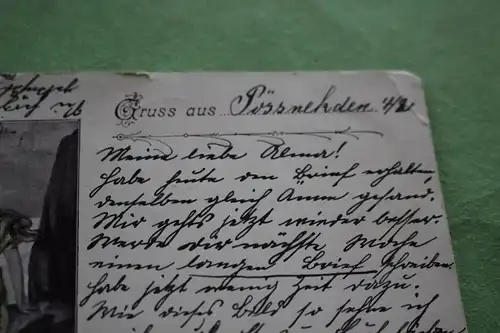 Gruss aus Pössnekden 4/2
Meine liebe Alma!
Habe heute den Brief erhalten,
denselben gleich Änne gesand.
Mir gehts jetzt wieder besser.
Werde dir nächste Woche
einen langen Brief schreiben.
habe jetzt wenig Zeit dazu.
Wie dieses Bild so sehne ich